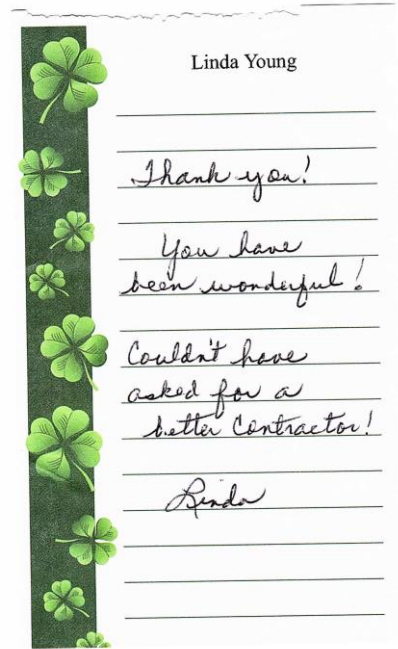 Linda Young
Thank you!
You have
been wonderful!
Couldn't have
asked for a
better Contractor!
Linda